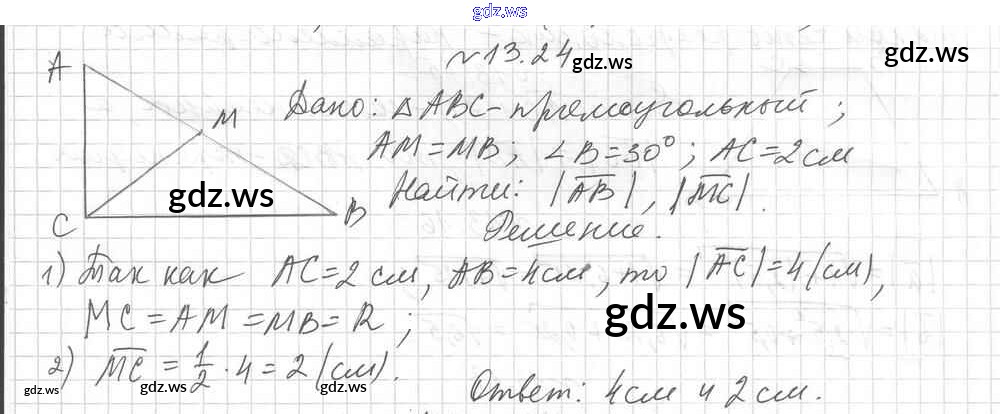 gdz.ws
№13.24
gdz.ws
gdz.ws
A
M
C
B
gdz.ws
Дано: △ABC-прямоугольный;
AM=MB; ∠B=30°; AC=2 см
Найти: |A̅B̅|, |M̅C̅|.
Решение.
1) Так как AC=2 см, AB=4 см, то |A̅C̅|=4 (см),
MC=AM=MB=R;
gdz.ws
2) M̅C̅ = 1/2 · 4 = 2 (см).
Ответ: 4 см и 2 см.
gdz.ws
gdz.ws
gdz.ws